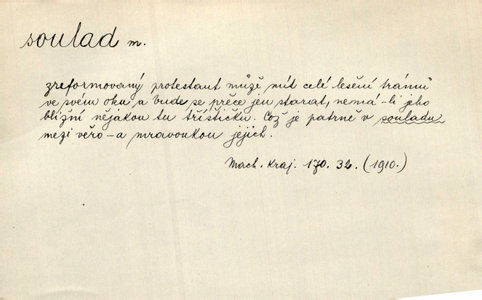 soulad m.
zreformovaný protestant může mít celé lešení trámů
ve svém oku a bude se přece jen starat, nemá-li jeho
bližní nějakou tu třístičku. Což je patrně v souladu
mezi věro-a mravoukou jejich.
Mach. Kraj. 170. 32. (1910.)